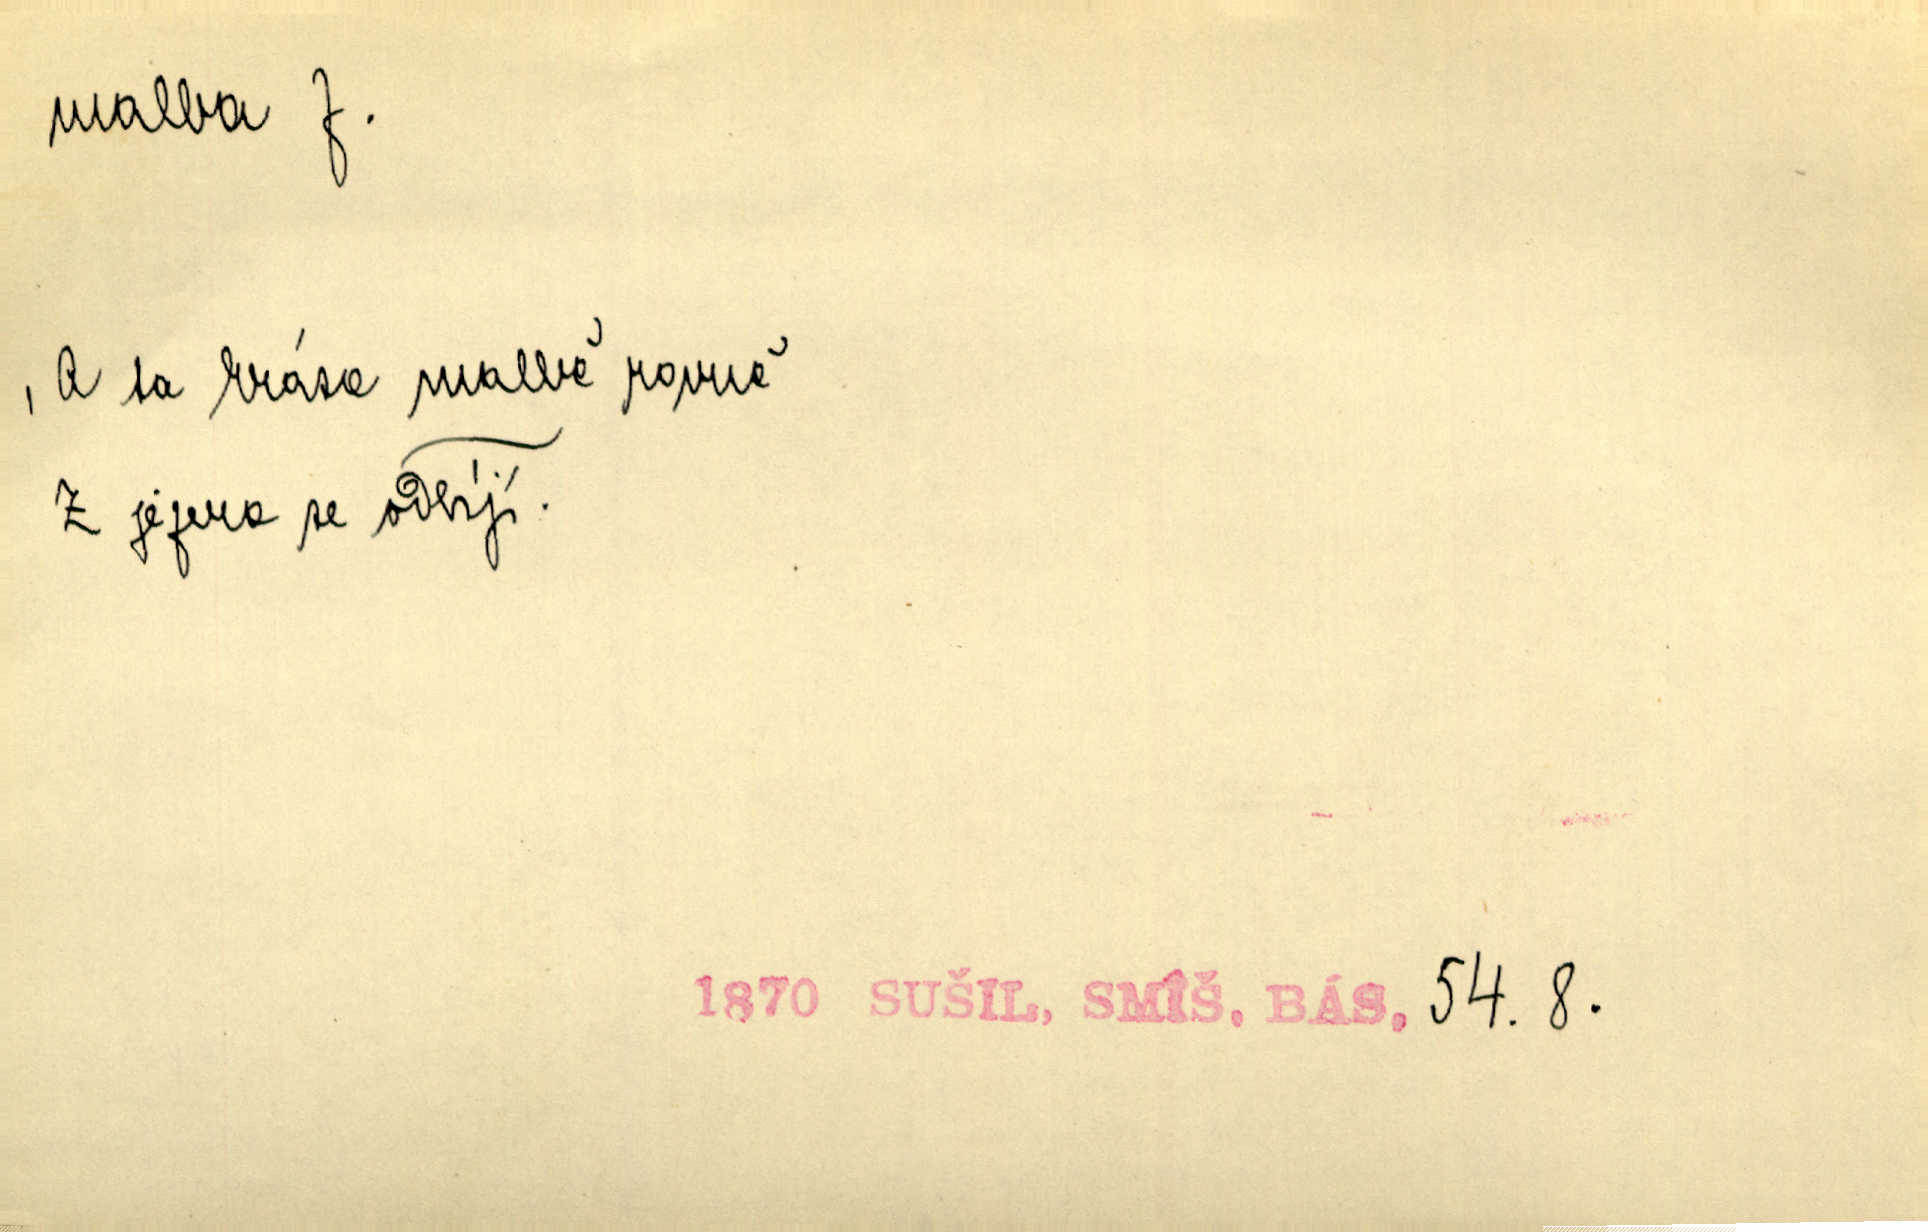 malba f.
, A ta krása malbě rovně
Z jejena se odbíjí.
1870 SUŠIL, SMÍŠ. BÁS. 54. 8.